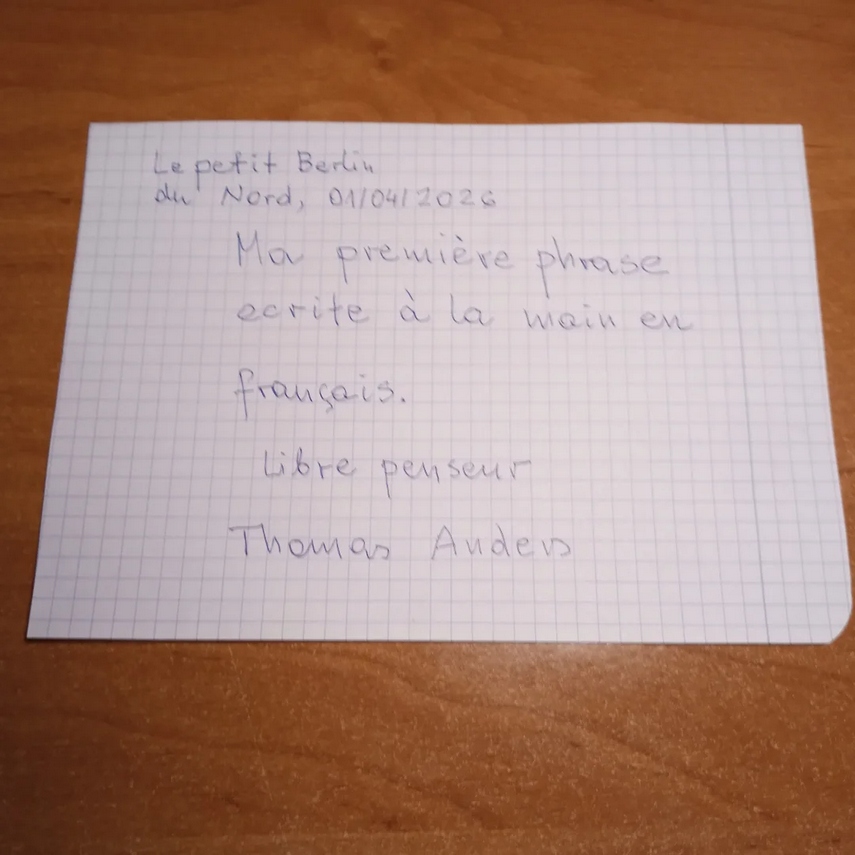 Le petit Berlin
du Nord, 01/04/2026
Ma première phrase
ecrite à la main en
français.
Libre penseur
Thomas Anders